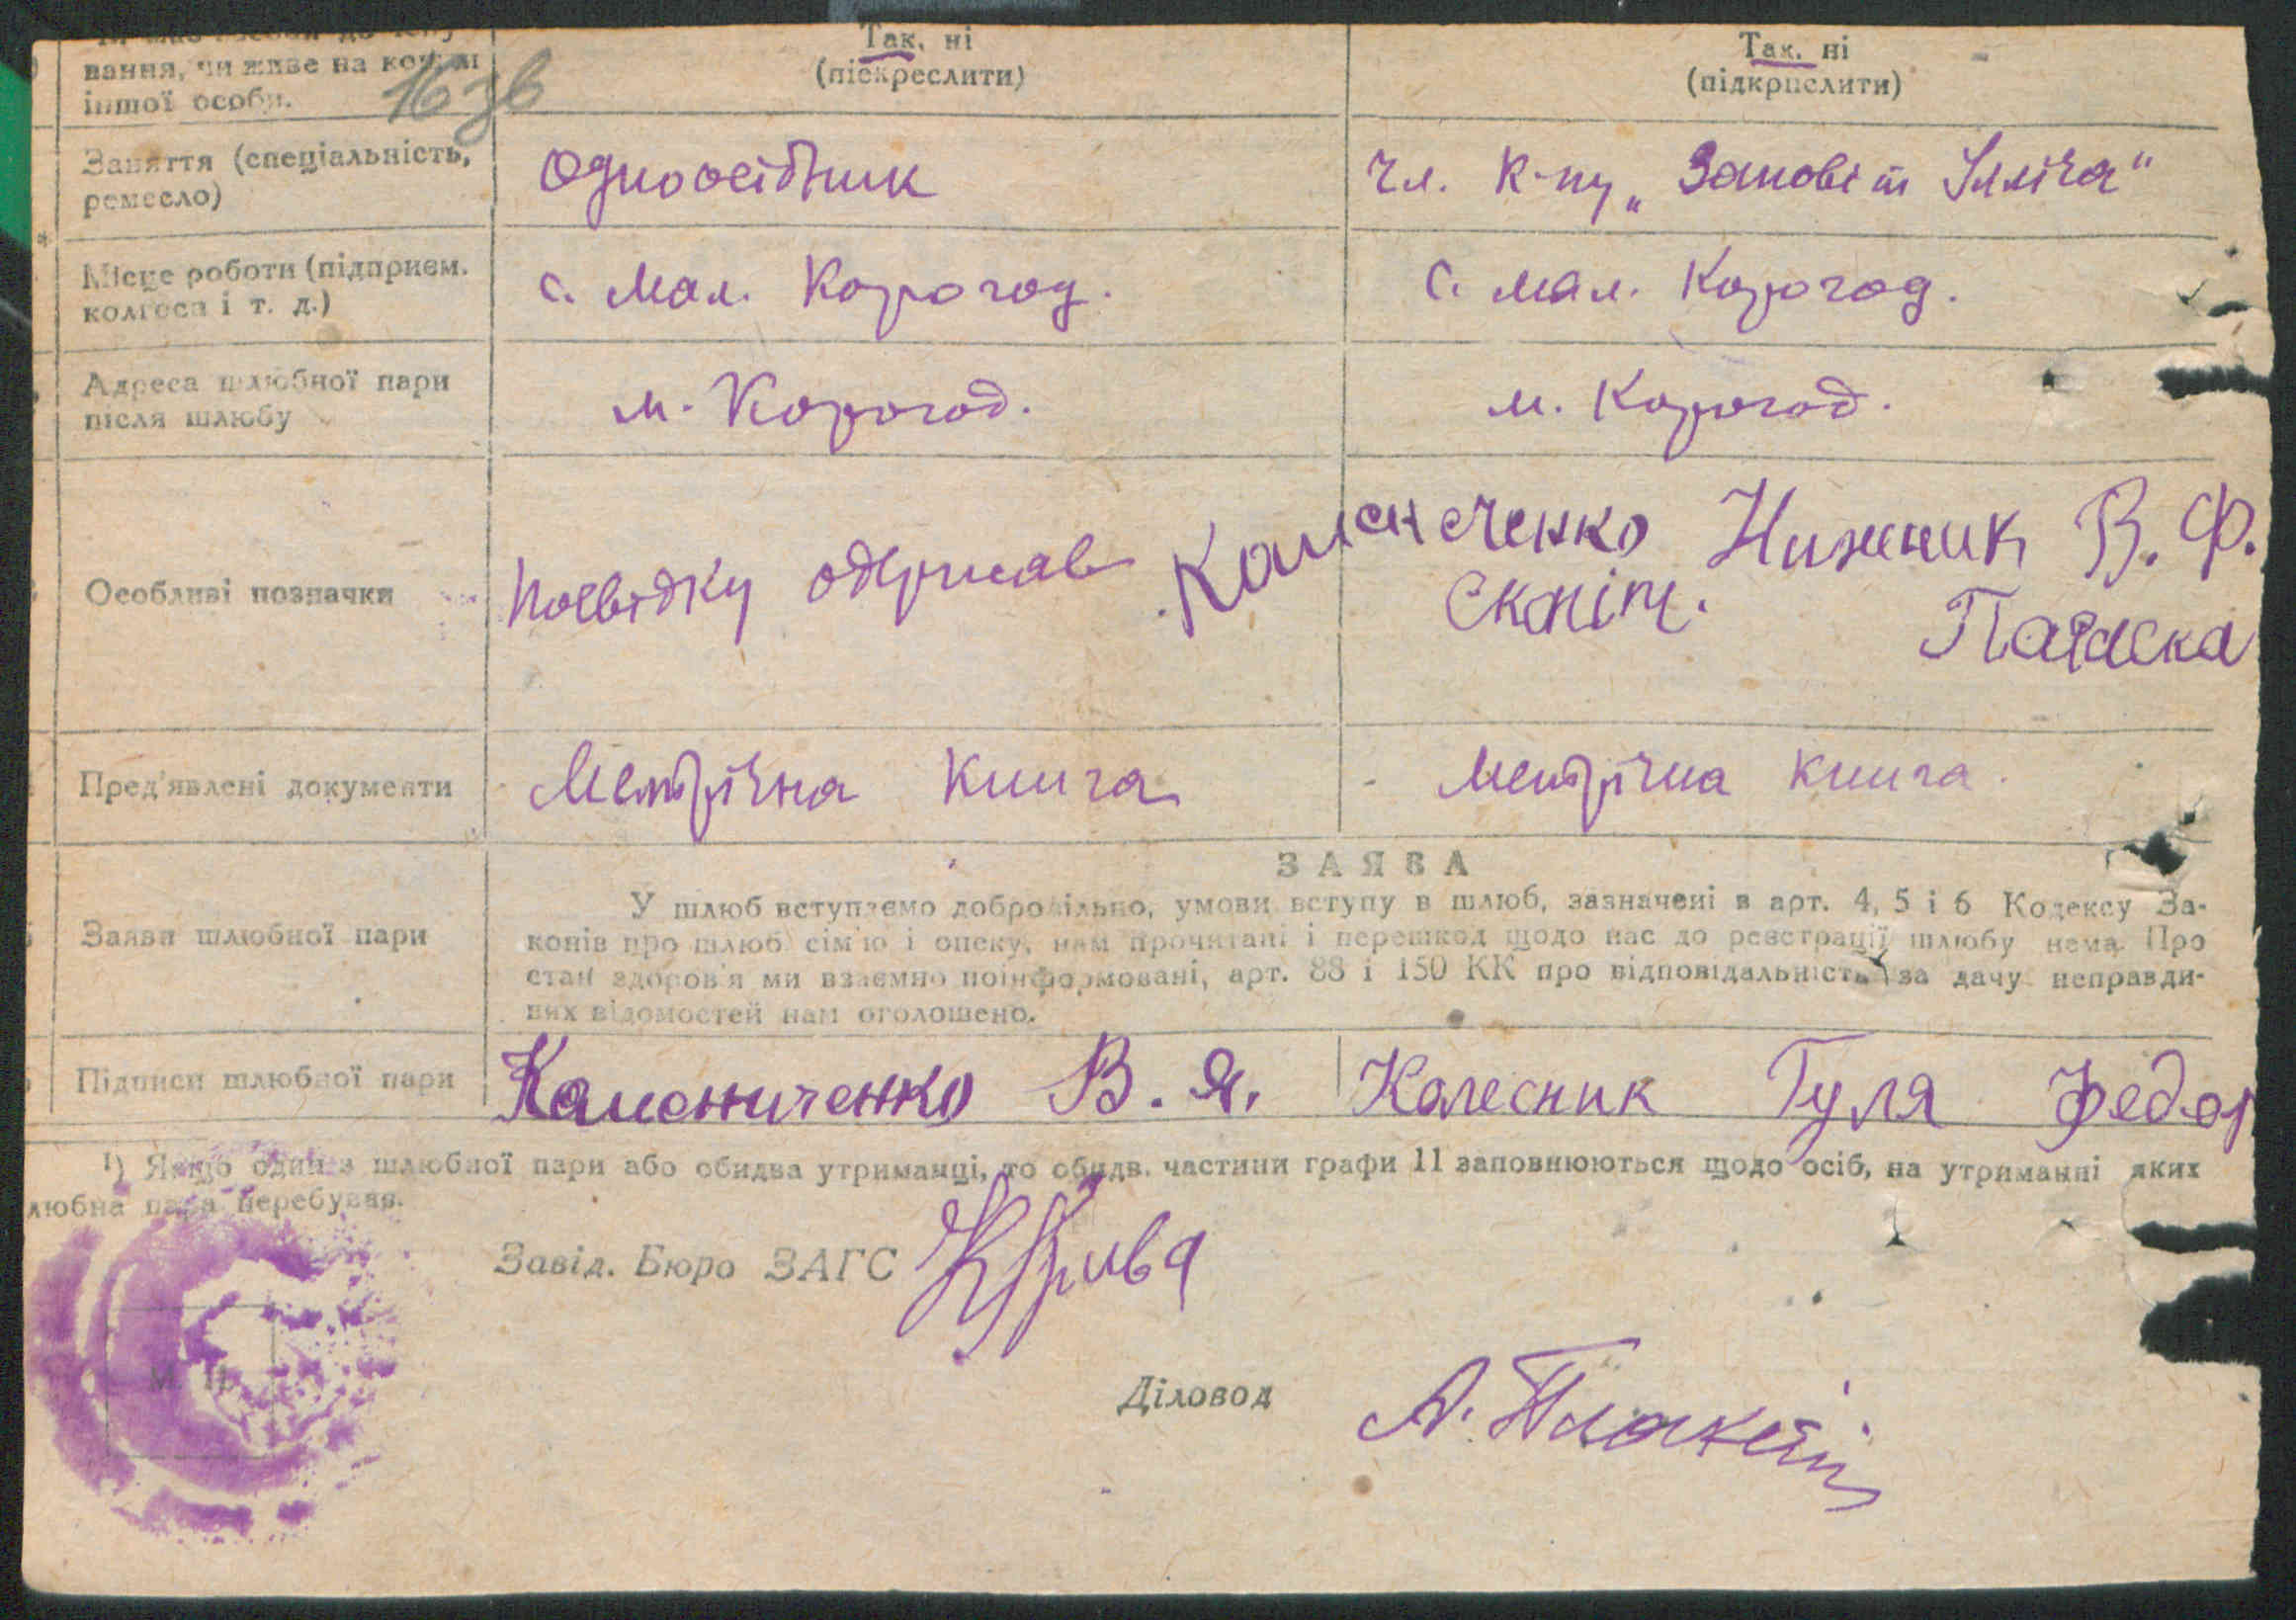 вання, чи живе на кошти
іншої особи.
16зв
Так, ні
(піскреслити)
Так. ні
(підкрпслити)
Заняття (спеціальність,
ремесло)
Одноосібник
чл. к-пу „Заповіт Ілліча"
Місце роботи (підприєм.
колгосп і т. д.)
с. Мал. Корогод.
с. Мал. Корогод.
Адреса шлюбної пари
після шлюбу
м. Корогод.
м. Корогод.
Особливі позначки
Посвідку одержав
Каменеченко
Нижник В. Ф.
Пред'явлені документи
Метрічна книга
Метрічна книга
ЗАЯВА
У шлюб вступаємо добровільно, умови вступу в шлюб, зазначені в арт. 4, 5 і 6 Кодексу За-
конів про шлюб сім'ю і опеку, нам прочитані і перешкод щодо нас до реєстрації шлюбу нема. Про
стан здоров'я ми взаємно поінформовані, арт. 88 і 150 КК про відповідальність за дачу неправди-
вих відомостей нам оголошено.
Заява шлюбної пари
Підписи шлюбної пари
Камениченко В. Я.
Колесник Гуля Федор
1) Якщо один з шлюбної пари або обидва утриманці, то обидв. частини графи 11 заповнюються щодо осіб, на утриманні яких
любна пара перебуває.
Завід. Бюро ЗАГС
Крива
М. П.
Діловод